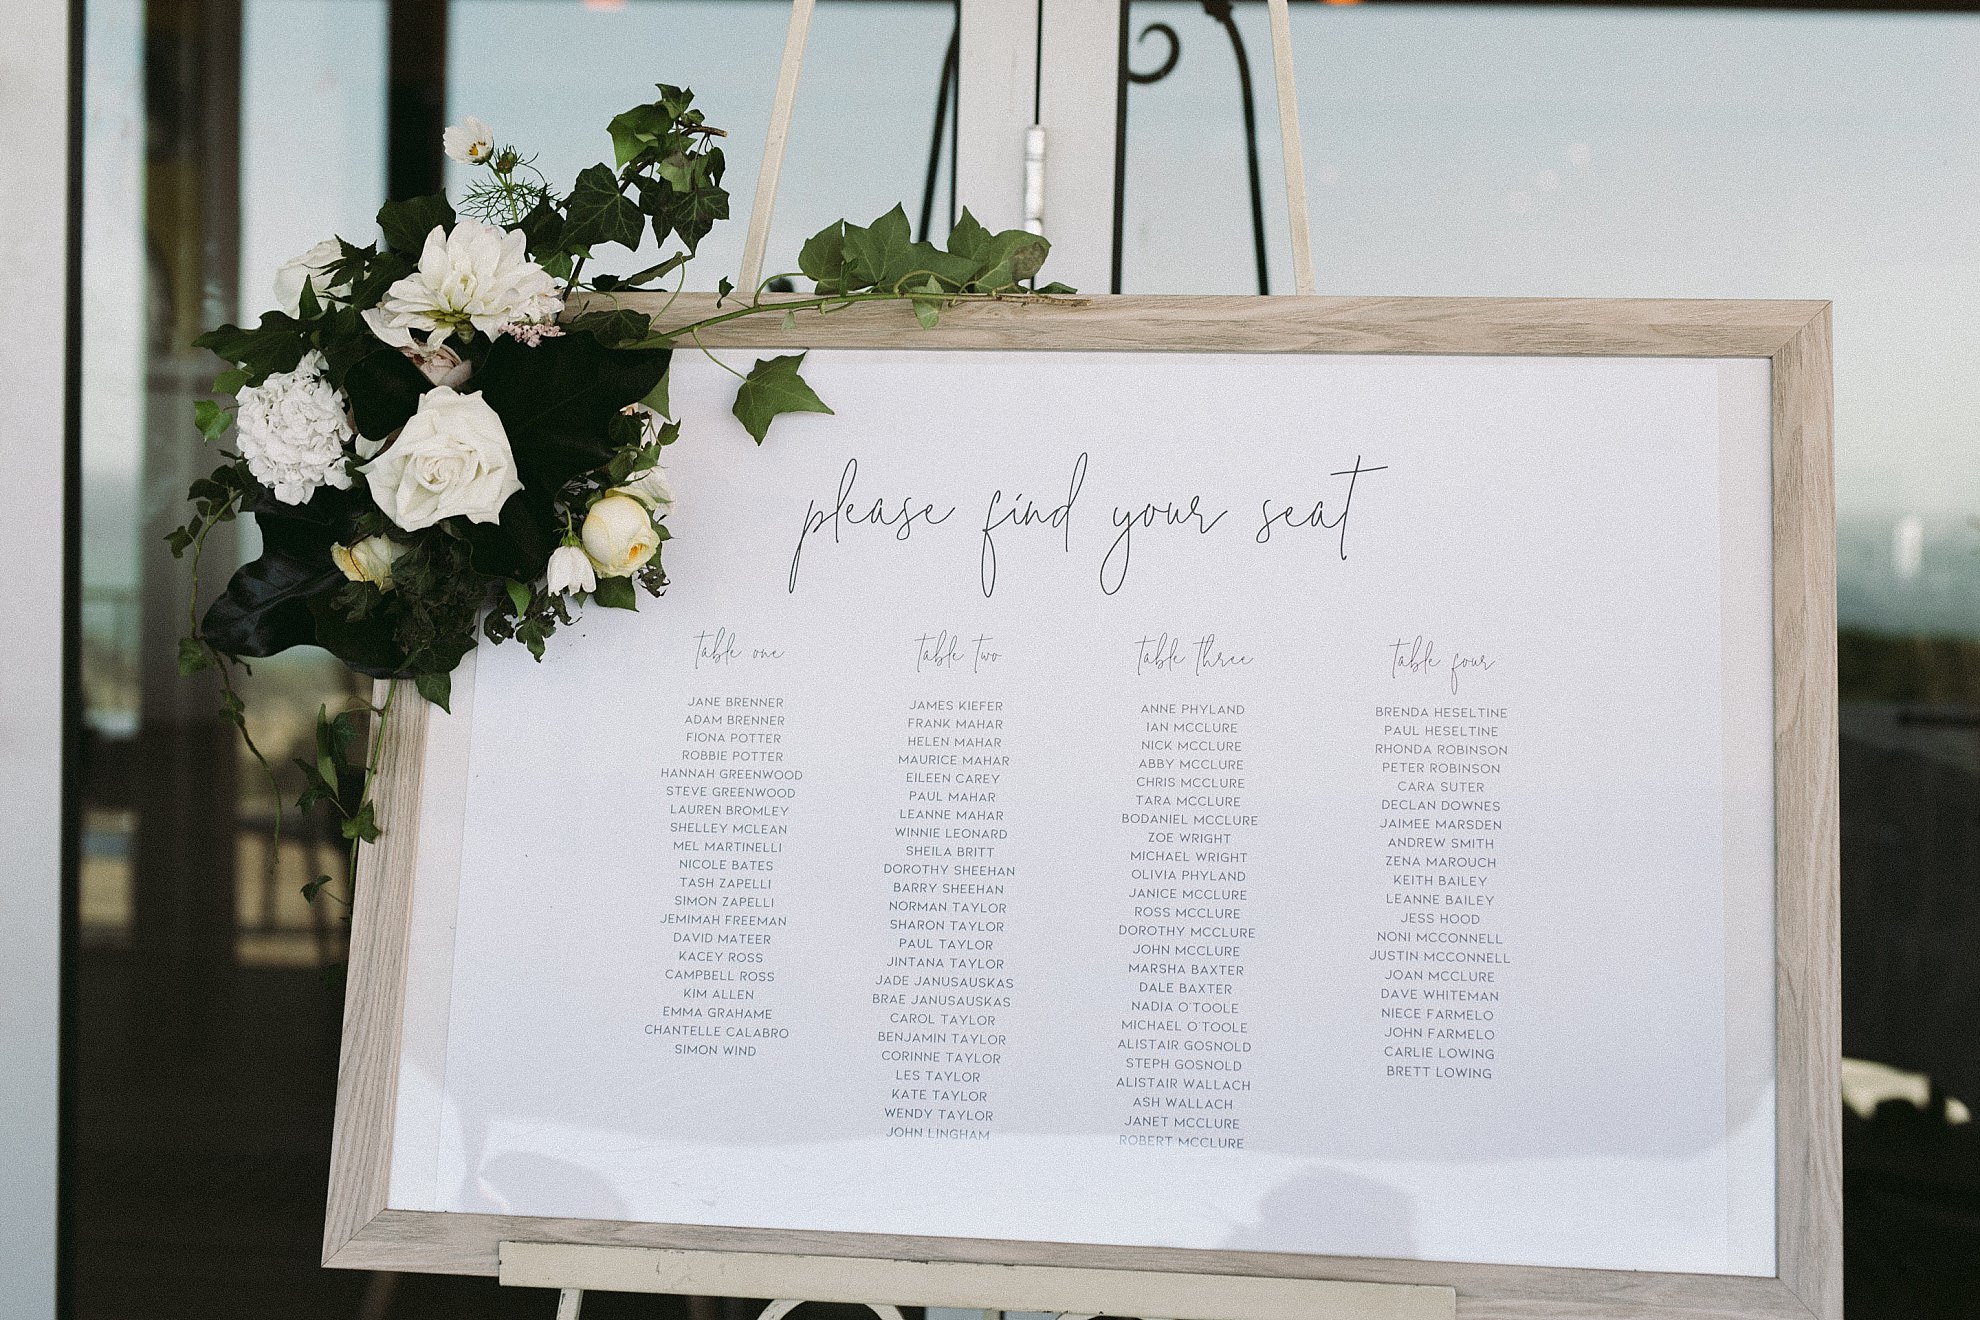 please find your seat
table one
JANE BRENNER
ADAM BRENNER
FIONA POTTER
ROBBIE POTTER
HANNAH GREENWOOD
STEVE GREENWOOD
LAUREN BROMLEY
SHELLEY MCLEAN
MEL MARTINELLI
NICOLE BATES
TASH ZAPELLI
SIMON ZAPELLI
JEMIMAH FREEMAN
DAVID MATEER
KACEY ROSS
CAMPBELL ROSS
KIM ALLEN
EMMA GRAHAME
CHANTELLE CALABRO
SIMON WIND
table two
JAMES KIEFER
FRANK MAHAR
HELEN MAHAR
MAURICE MAHAR
EILEEN CAREY
PAUL MAHAR
LEANNE MAHAR
WINNIE LEONARD
SHEILA BRITT
DOROTHY SHEEHAN
BARRY SHEEHAN
NORMAN TAYLOR
SHARON TAYLOR
PAUL TAYLOR
JINTANA TAYLOR
JADE JANUSAUSKAS
BRAE JANUSAUSKAS
CAROL TAYLOR
BENJAMIN TAYLOR
CORINNE TAYLOR
LES TAYLOR
KATE TAYLOR
WENDY TAYLOR
JOHN LINGHAM
table three
ANNE PHYLAND
IAN MCCLURE
NICK MCCLURE
ABBY MCCLURE
CHRIS MCCLURE
TARA MCCLURE
BODANIEL MCCLURE
ZOE WRIGHT
MICHAEL WRIGHT
OLIVIA PHYLAND
JANICE MCCLURE
ROSS MCCLURE
DOROTHY MCCLURE
JOHN MCCLURE
MARSHA BAXTER
DALE BAXTER
NADIA O'TOOLE
MICHAEL O'TOOLE
ALISTAIR GOSNOLD
STEPH GOSNOLD
ALISTAIR WALLACH
ASH WALLACH
JANET MCCLURE
ROBERT MCCLURE
table four
BRENDA HESELTINE
PAUL HESELTINE
RHONDA ROBINSON
PETER ROBINSON
CARA SUTER
DECLAN DOWNES
JAIMEE MARSDEN
ANDREW SMITH
ZENA MAROUCH
KEITH BAILEY
LEANNE BAILEY
JESS HOOD
NONI MCCONNELL
JUSTIN MCCONNELL
JOAN MCCLURE
DAVE WHITEMAN
NIECE FARMELO
JOHN FARMELO
CARLIE LOWING
BRETT LOWING